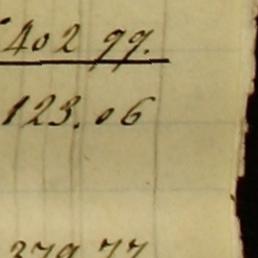 402 99.
123.06
379.77